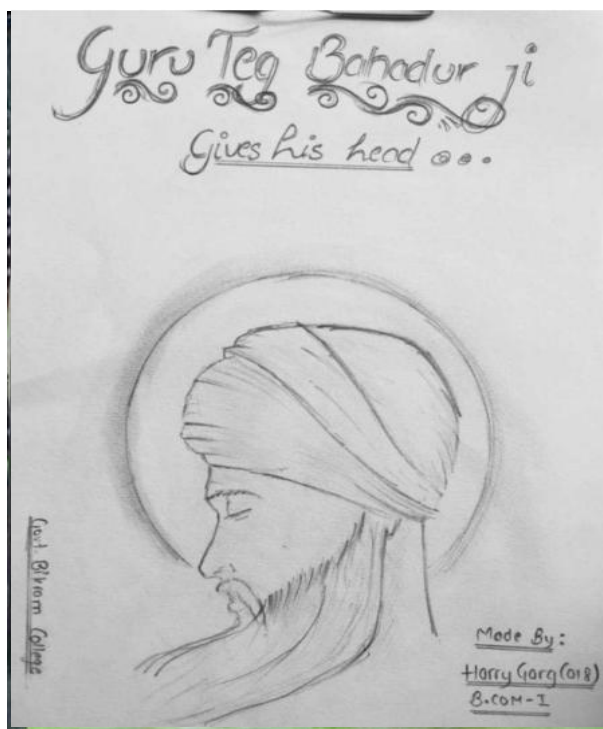 Guru Teg Bahadur ji
Gives his head ...
Govt. Bikram College
Made By:
Harry Garg (018)
B.COM-I